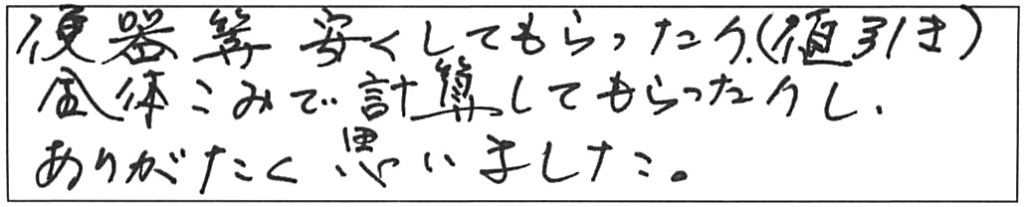 便器等安くしてもらったり、(値引き)
全体こみで計算してもらったりし、
ありがたく思いました。